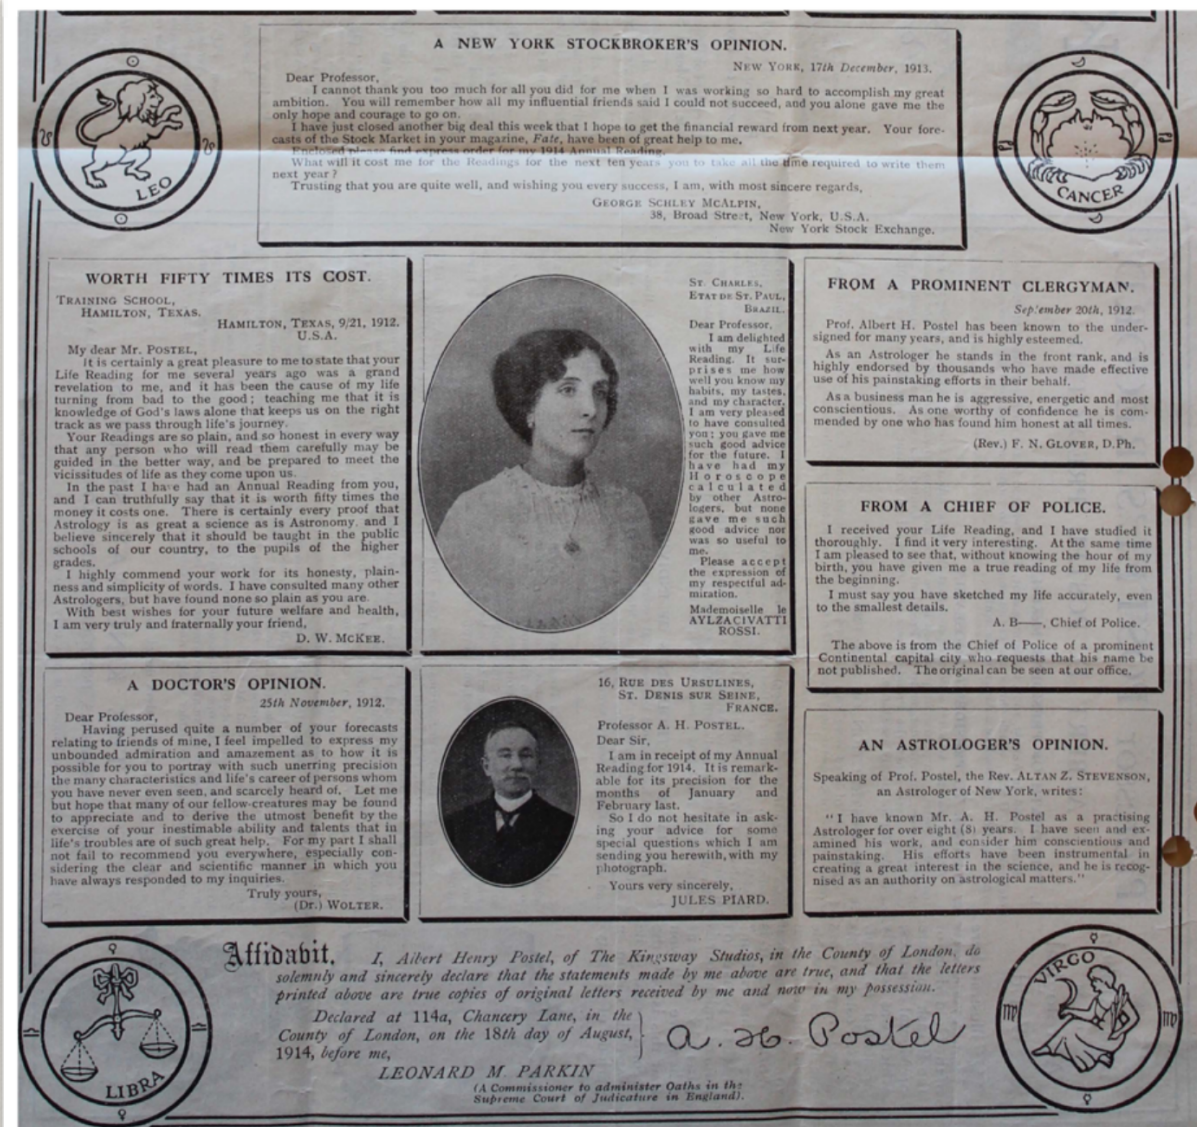 A NEW YORK STOCKBROKER'S OPINION.
NEW YORK, 17th December, 1913.
Dear Professor,
I cannot thank you too much for all you did for me when I was working so hard to accomplish my great
ambition. You will remember how all my influential friends said I could not succeed, and you alone gave me the
only hope and courage to go on.
I have just closed another big deal this week that I hope to get the financial reward from next year. Your fore-
casts of the Stock Market in your magazine, Fate, have been of great help to me.
Enclosed please find express order for my 1914 Annual Reading.
What will it cost me for the Readings for the next ten years you to take all the time required to write them
next year?
Trusting that you are quite well, and wishing you every success, I am, with most sincere regards,
GEORGE SCHLEY MCALPIN,
38, Broad Street, New York, U.S.A.
New York Stock Exchange.
LEO
CANCER
WORTH FIFTY TIMES ITS COST.
TRAINING SCHOOL,
HAMILTON, TEXAS.
HAMILTON, TEXAS, 9/21, 1912.
U.S.A.
My dear Mr. POSTEL,
It is certainly a great pleasure to me to state that your
Life Reading for me several years ago was a grand
revelation to me, and it has been the cause of my life
turning from bad to the good; teaching me that it is
knowledge of God's laws alone that keeps us on the right
track as we pass through life's journey.
Your Readings are so plain, and so honest in every way
that any person who will read them carefully may be
guided in the better way, and be prepared to meet the
vicissitudes of life as they come upon us.
In the past I have had an Annual Reading from you,
and I can truthfully say that it is worth fifty times the
money it costs one. There is certainly every proof that
Astrology is as great a science as is Astronomy. and I
believe sincerely that it should be taught in the public
schools of our country, to the pupils of the higher
grades.
I highly commend your work for its honesty, plain-
ness and simplicity of words. I have consulted many other
Astrologers, but have found none so plain as you are.
With best wishes for your future welfare and health,
I am very truly and fraternally your friend,
D. W. MCKEE.
ST. CHARLES,
ETAT DE ST. PAUL,
BRAZIL.
Dear Professor,
I am delighted
with my Life
Reading. It sur-
prises me how
well you know my
habits, my tastes,
and my character.
I am very pleased
to have consulted
you; you gave me
such good advice
for the future. I
have had my
Horoscope
calculated
by other Astro-
logers, but none
gave me such
good advice nor
was so useful to
me.
Please accept
the expression of
my respectful ad-
miration.
Mademoiselle le
AYLZACIVATTI
ROSSI.
FROM A PROMINENT CLERGYMAN.
September 20th, 1912.
Prof. Albert H. Postel has been known to the under-
signed for many years, and is highly esteemed.
As an Astrologer he stands in the front rank, and is
highly endorsed by thousands who have made effective
use of his painstaking efforts in their behalf.
As a business man he is aggressive, energetic and most
conscientious. As one worthy of confidence he is com-
mended by one who has found him honest at all times.
(Rev.) F. N. GLOVER, D.Ph.
FROM A CHIEF OF POLICE.
I received your Life Reading, and I have studied it
thoroughly. I find it very interesting. At the same time
I am pleased to see that, without knowing the hour of my
birth, you have given me a true reading of my life from
the beginning.
I must say you have sketched my life accurately, even
to the smallest details.
A. B—, Chief of Police.
The above is from the Chief of Police of a prominent
Continental capital city who requests that his name be
not published. The original can be seen at our office.
A DOCTOR'S OPINION.
25th November, 1912.
Dear Professor,
Having perused quite a number of your forecasts
relating to friends of mine, I feel impelled to express my
unbounded admiration and amazement as to how it is
possible for you to portray with such unerring precision
the many characteristics and life's career of persons whom
you have never even seen, and scarcely heard of. Let me
but hope that many of our fellow-creatures may be found
to appreciate and to derive the utmost benefit by the
exercise of your inestimable ability and talents that in
life's troubles are of such great help. For my part I shall
not fail to recommend you everywhere, especially con-
sidering the clear and scientific manner in which you
have always responded to my inquiries.
Truly yours,
(Dr.) WOLTER.
16, RUE DES URSULINES,
ST. DENIS SUR SEINE,
FRANCE.
Professor A. H. POSTEL.
Dear Sir,
I am in receipt of my Annual
Reading for 1914. It is remark-
able for its precision for the
months of January and
February last.
So I do not hesitate in ask-
ing your advice for some
special questions which I am
sending you herewith, with my
photograph.
Yours very sincerely,
JULES PIARD.
AN ASTROLOGER'S OPINION.
Speaking of Prof. Postel, the Rev. ALTAN Z. STEVENSON,
an Astrologer of New York, writes:
"I have known Mr. A. H. Postel as a practising
Astrologer for over eight (8) years. I have seen and ex-
amined his work, and consider him conscientious and
painstaking. His efforts have been instrumental in
creating a great interest in the science, and he is recog-
nised as an authority on astrological matters."
LIBRA
VIRGO
Affidabit. I, Albert Henry Postel, of The Kingsway Studios, in the County of London, do
solemnly and sincerely declare that the statements made by me above are true, and that the letters
printed above are true copies of original letters received by me and now in my possession.
Declared at 114a, Chancery Lane, in the
County of London, on the 18th day of August,
1914, before me,
A. H. Postel
LEONARD M. PARKIN
(A Commissioner to administer Oaths in the
Supreme Court of Judicature in England).